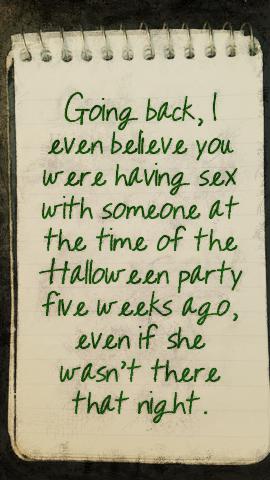 Going back, I
even believe you
were having sex
with someone at
the time of the
Halloween party
five weeks ago,
even if she
wasn't there
that night.